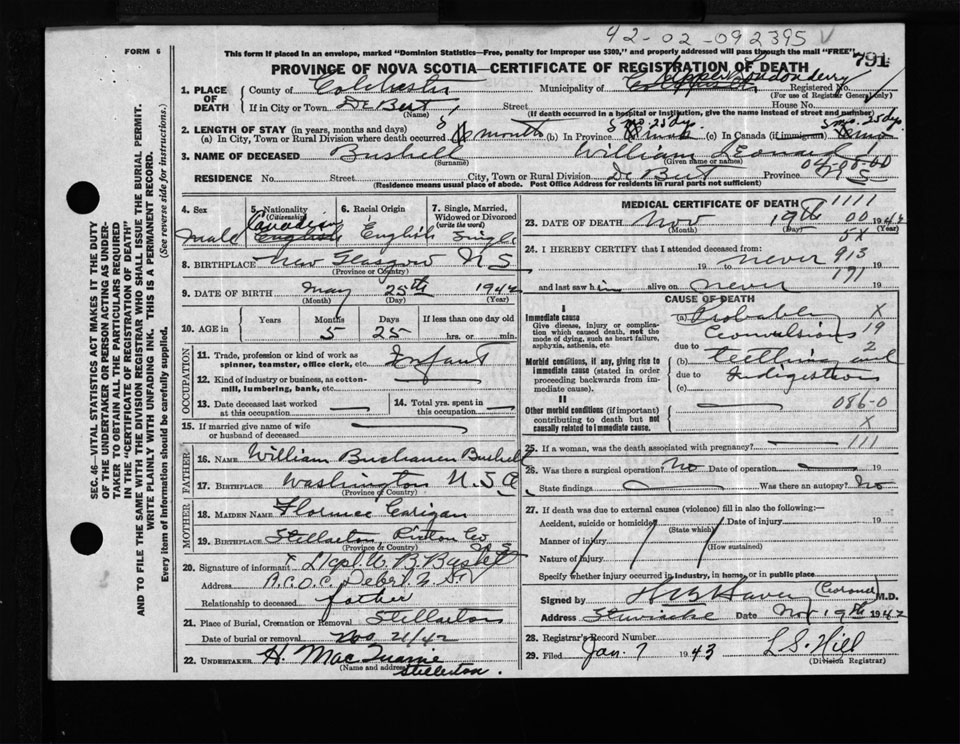 42-02-092395 V
FORM 6
This form if placed in an envelope, marked "Dominion Statistics—Free, penalty for improper use $300," and properly addressed will pass through the mail "FREE".
791
PROVINCE OF NOVA SCOTIA—CERTIFICATE OF REGISTRATION OF DEATH
1. PLACE OF DEATH County of Colchester Municipality of Upper Londonderry Registered No.
(For use of Registrar General only)
If in City or Town De Bert Street House No.
(Name) (If death occurred in a hospital or institution, give the name instead of street and number)
2. LENGTH OF STAY (in years, months and days)
(a) In City, Town or Rural Division where death occurred months (b) In Province 5 mo. 25 dys. (c) In Canada (if immigrant) 5 mo. 25 dys.
3. NAME OF DECEASED Bushell William Leonard
(Surname) (Given name or names)
RESIDENCE No. Street City, Town or Rural Division De Bert Province N S
(Residence means usual place of abode. Post Office Address for residents in rural parts not sufficient)
4. Sex Male
5. Nationality (Citizenship) Canadian English
6. Racial Origin English
7. Single, Married, Widowed or Divorced (write the word) Single
8. BIRTHPLACE New Glasgow N S
(Province or Country)
9. DATE OF BIRTH May 25th 1942
(Month) (Day) (Year)
10. AGE in Years Months Days If less than one day old
5 25 hrs. or min.
OCCUPATION
11. Trade, profession or kind of work as spinner, teamster, office clerk, etc. Infant
12. Kind of industry or business, as cotton-mill, lumbering, bank, etc.
13. Date deceased last worked at this occupation
14. Total yrs. spent in this occupation
15. If married give name of wife or husband of deceased
FATHER
16. NAME William Buchanen Bushell
17. BIRTHPLACE Washington U.S.A.
(Province or Country)
MOTHER
18. MAIDEN NAME Florence Carigan
19. BIRTHPLACE Stellarton, Pictou Co N.S.
(Province or Country)
20. Signature of informant W. B.
Address Debert N.S.
Relationship to deceased father
21. Place of Burial, Cremation or Removal Stellarton
Date of burial or removal Nov 21/42
22. UNDERTAKER H. Mac Quarrie
(Name and address) Stellarton.
MEDICAL CERTIFICATE OF DEATH 1111
23. DATE OF DEATH Nov 19th 00 1942
(Month) (Day) (Year)
5X
24. I HEREBY CERTIFY that I attended deceased from:
19 to never 913 19
171
and last saw him alive on never 19
CAUSE OF DEATH
I
Immediate cause
Give disease, injury or complication which caused death, not the mode of dying, such as heart failure, asphyxia, asthenia, etc.
(a) Probable X
due to Convulsions 19
2
Morbid conditions, if any, giving rise to immediate cause (stated in order proceeding backwards from immediate cause).
(b) teething and
due to Indigestion
(c)
II
Other morbid conditions (if important) contributing to death but not causally related to immediate cause.
086-0
X
25. If a woman, was the death associated with pregnancy? 111
26. Was there a surgical operation? No Date of operation 19
State findings Was there an autopsy? No
27. If death was due to external causes (violence) fill in also the following:—
Accident, suicide or homicide? Date of injury 19
(State which)
Manner of injury
(How sustained)
Nature of injury
Specify whether injury occurred in industry, in home, or in public place
Signed by (Coroner) M.D.
Address Stewiacke Date Nov 19th 1942
28. Registrar's Record Number
29. Filed Jan. 7 1943 L S. Hill
(Division Registrar)
SEC. 46—VITAL STATISTICS ACT MAKES IT THE DUTY OF THE UNDERTAKER OR PERSON ACTING AS UNDERTAKER TO OBTAIN ALL THE PARTICULARS REQUIRED IN THE "CERTIFICATE OF REGISTRATION OF DEATH" AND TO FILE THE SAME WITH THE DIVISION REGISTRAR WHO SHALL ISSUE THE BURIAL PERMIT.
WRITE PLAINLY WITH UNFADING INK. THIS IS A PERMANENT RECORD.
Every item of information should be carefully supplied. (See reverse side for instructions.)